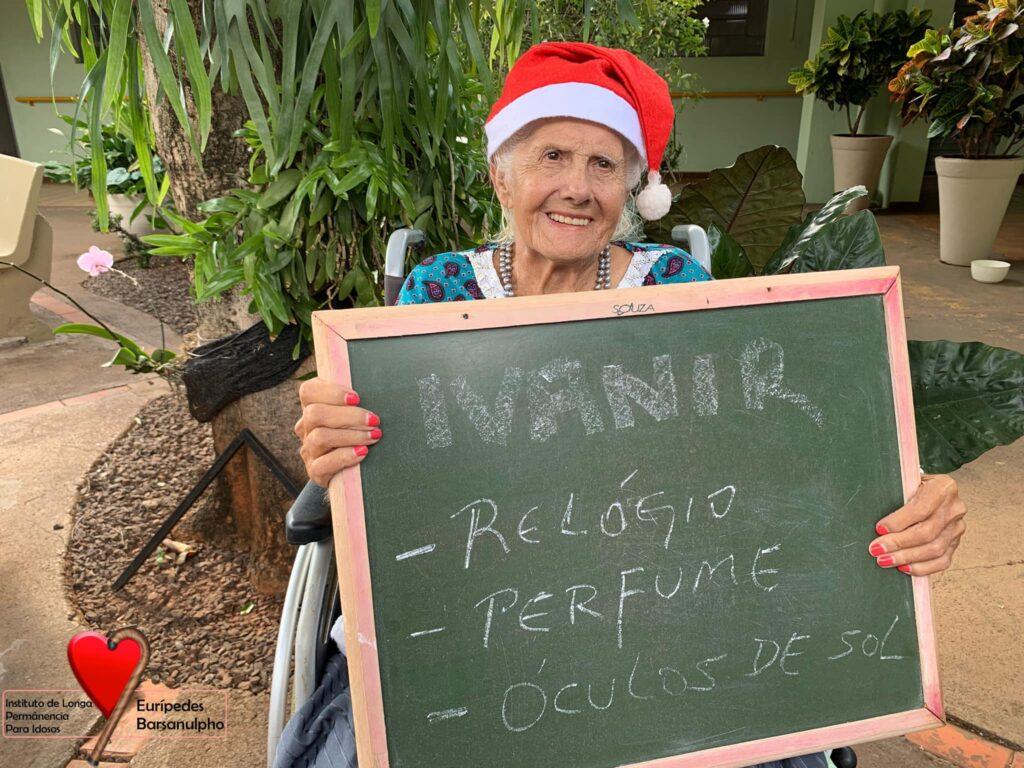 SOUZA
IVANIR
- RELÓGIO
- PERFUME
- ÓCULOS DE SOL
Instituto de Longa
Permânencia
Para Idosos
Eurípedes
Barsanulpho